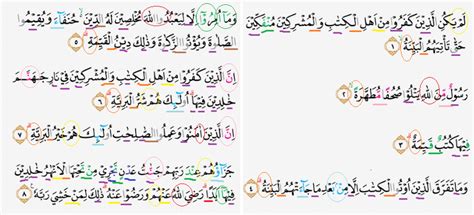 لَمْ يَكُنِ الَّذِيْنَ كَفَرُوْا مِنْ اَهْلِ الْكِتٰبِ وَالْمُشْرِكِيْنَ مُنْفَكِّيْنَ
حَتّٰى تَأْتِيَهُمُ الْبَيِّنَةُ ۝١
رَسُوْلٌ مِّنَ اللّٰهِ يَتْلُوْا صُحُفًا مُّطَهَّرَةً ۝٢
فِيْهَا كُتُبٌ قَيِّمَةٌ ۝٣
وَمَا تَفَرَّقَ الَّذِيْنَ اُوْتُوا الْكِتٰبَ اِلَّا مِنْۢ بَعْدِ مَا جَاۤءَتْهُمُ الْبَيِّنَةُ ۝٤
وَمَآ اُمِرُوْٓا اِلَّا لِيَعْبُدُوا اللّٰهَ مُخْلِصِيْنَ لَهُ الدِّيْنَ حُنَفَاۤءَ وَيُقِيْمُوا
الصَّلٰوةَ وَيُؤْتُوا الزَّكٰوةَ وَذٰلِكَ دِيْنُ الْقَيِّمَةِ ۝٥
اِنَّ الَّذِيْنَ كَفَرُوْا مِنْ اَهْلِ الْكِتٰبِ وَالْمُشْرِكِيْنَ فِيْ نَارِ جَهَنَّمَ
خٰلِدِيْنَ فِيْهَا اُولٰۤىِٕكَ هُمْ شَرُّ الْبَرِيَّةِ ۝٦
اِنَّ الَّذِيْنَ اٰمَنُوْا وَعَمِلُوا الصّٰلِحٰتِ اُولٰۤىِٕكَ هُمْ خَيْرُ الْبَرِيَّةِ ۝٧
جَزَاۤؤُهُمْ عِنْدَ رَبِّهِمْ جَنّٰتُ عَدْنٍ تَجْرِيْ مِنْ تَحْتِهَا الْاَنْهٰرُ خٰلِدِيْنَ
فِيْهَآ اَبَدًا رَضِيَ اللّٰهُ عَنْهُمْ وَرَضُوْا عَنْهُ ذٰلِكَ لِمَنْ خَشِيَ رَبَّهٗ ۝٨